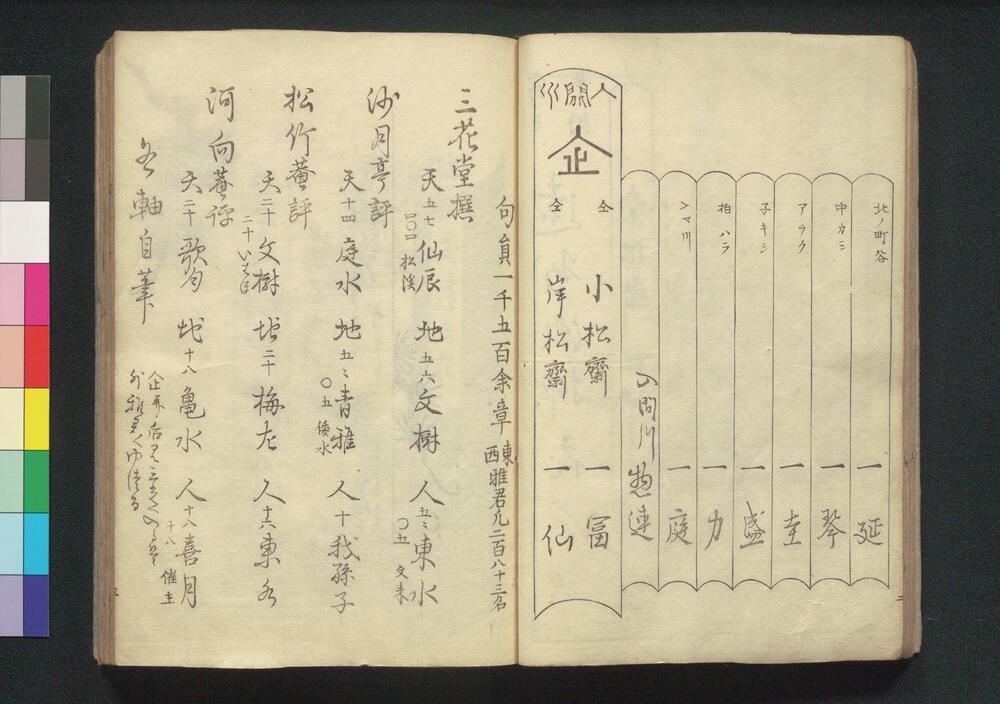 北ノ町谷 一 延
中カミ 一 琴
アラク 一 圭
子キシ 一 盛
柏ハラ 一 力
シマ川 一 庭
入間川惣連
入間川
企
仝 小松齋 一 冨
仝 岸松齋 一 仙
句員一千五百余章 東西雅君凡二百八十三名
三花堂撰
天 五七 仙辰 地 五六 文樹 人 五ゝ 東水
一〇〇 松溪 〇五 文来
沙月亭評
天 十四 庭水 地 五ゝ 青雅 人 十 我孫子
〇五 倭水
松竹菴評
天 二十 文樹 地 二十 梅左 人 十六 東水
二十
河向菴評
天 二十 歌勺 地 十八 亀水 人 十八 喜月
十八 催主
各軸自筆